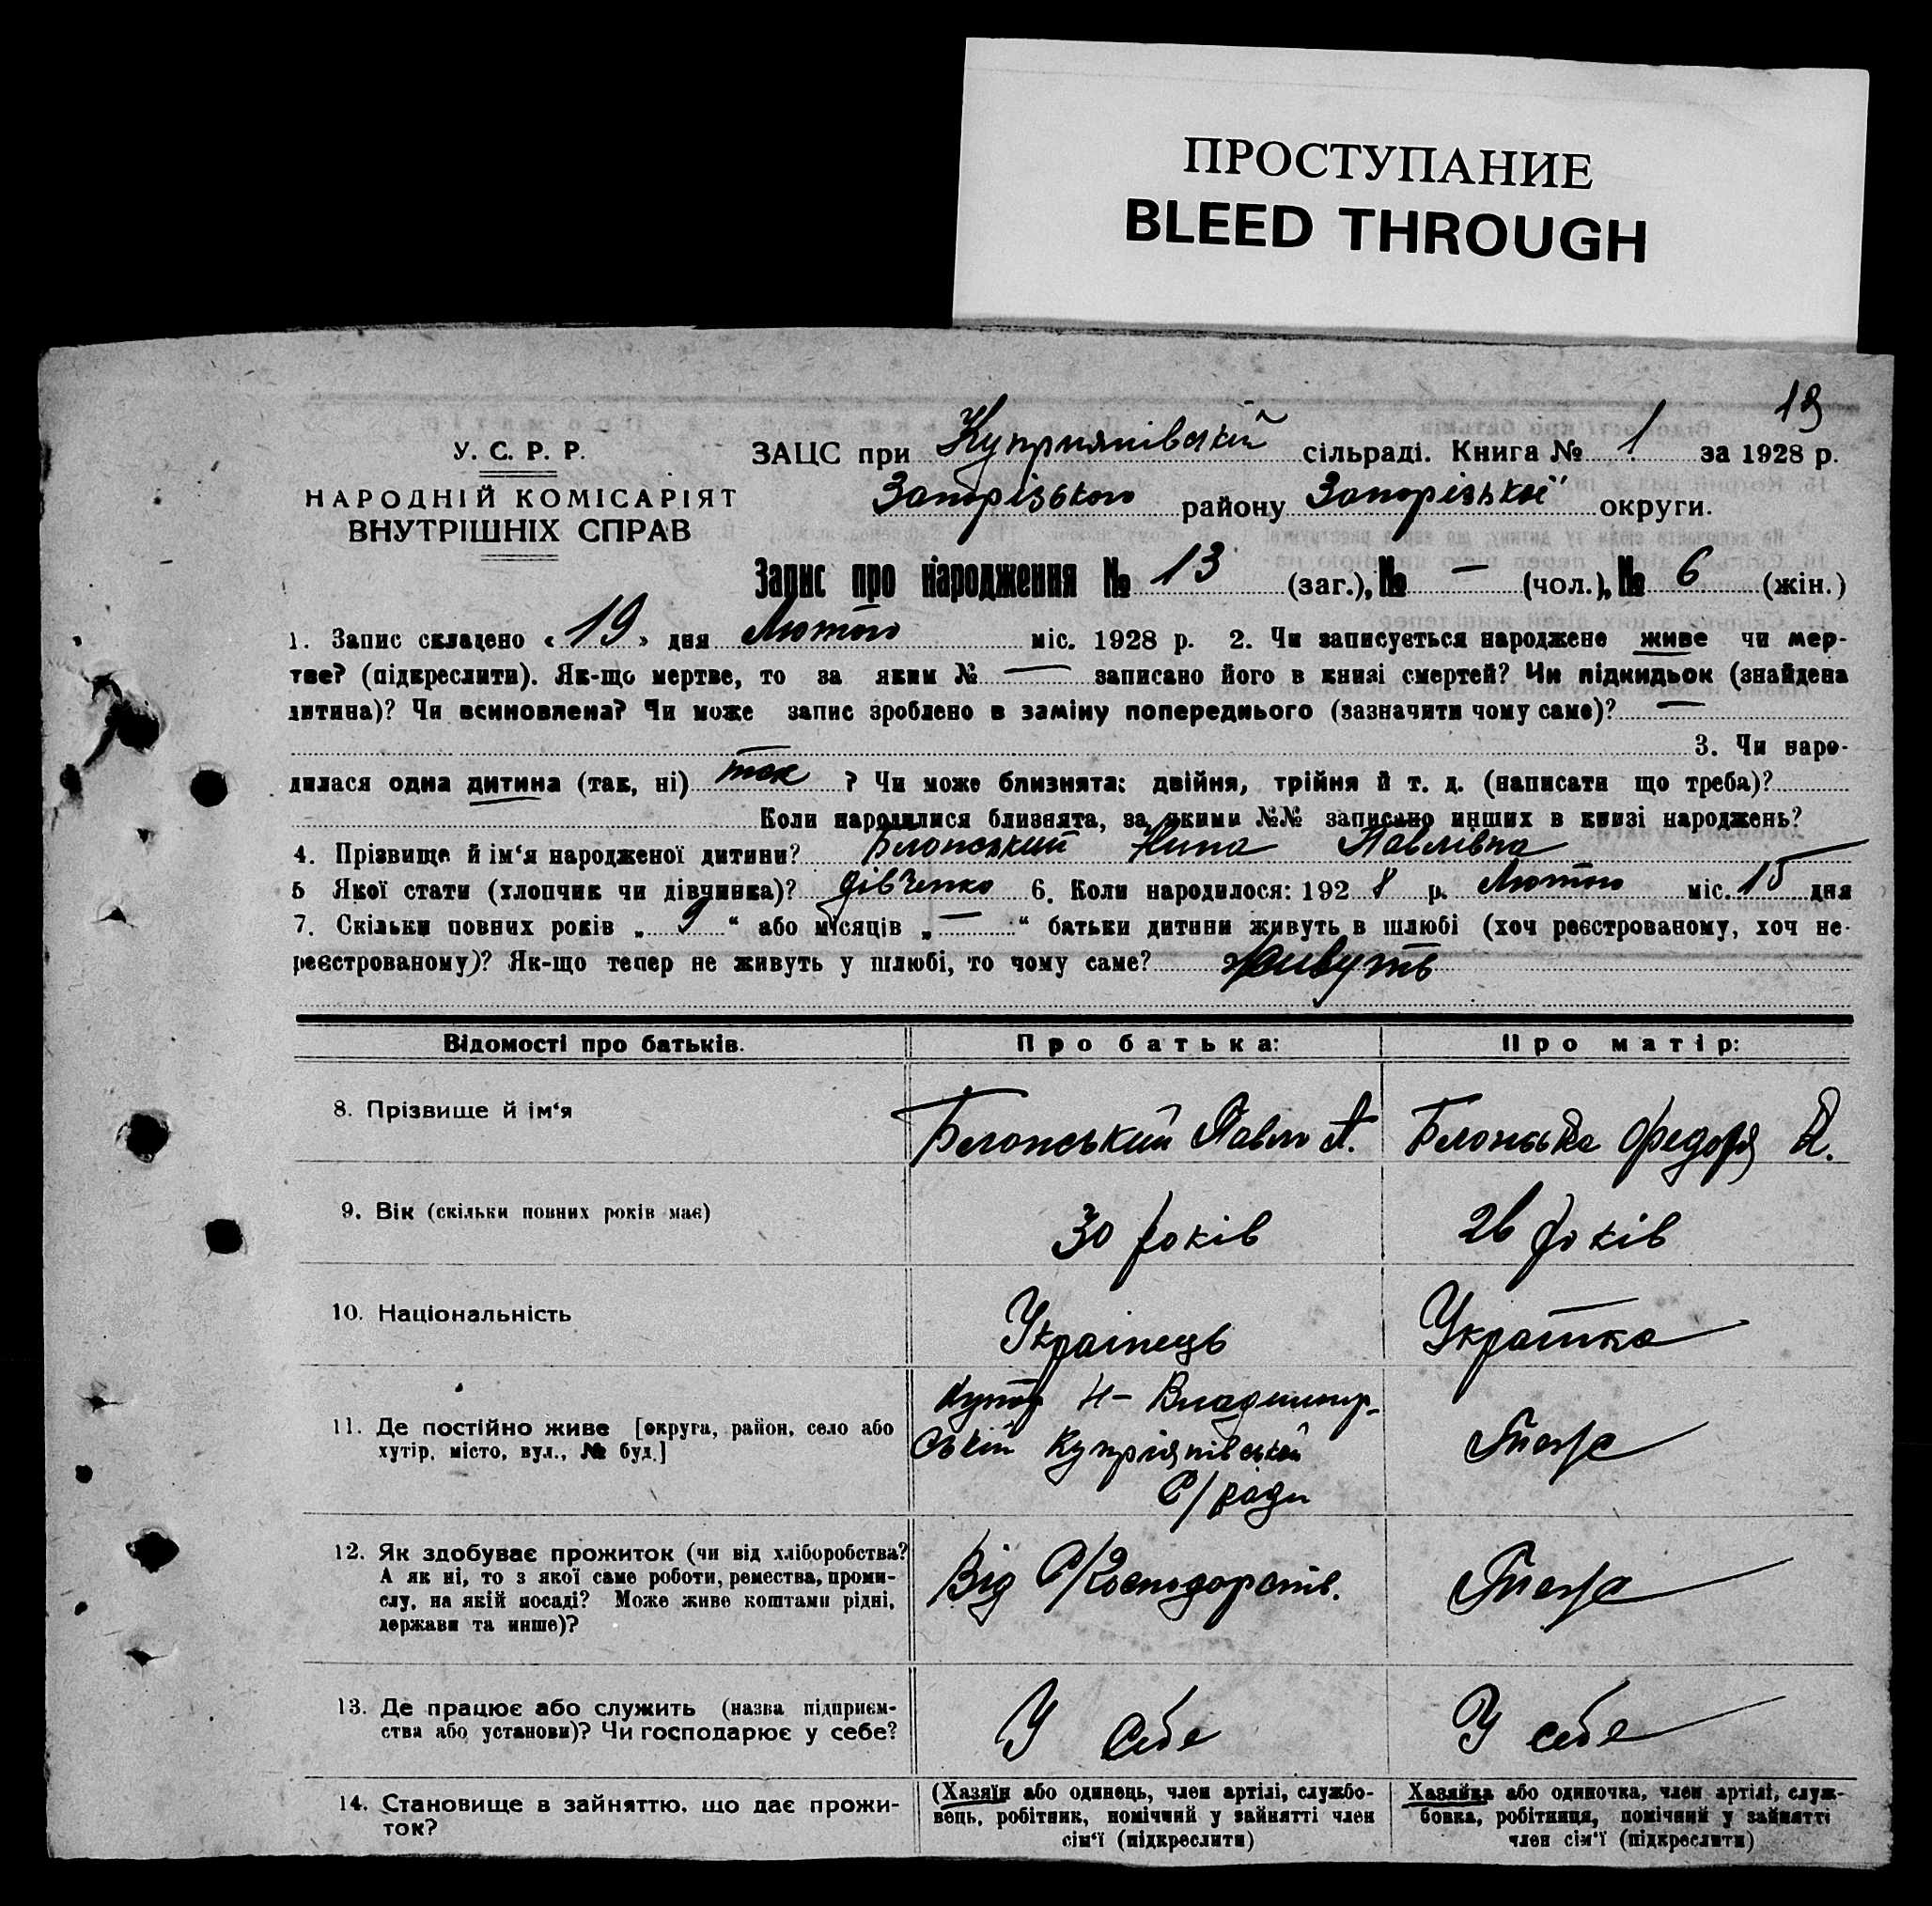 ПРОСТУПАНИЕ
BLEED THROUGH
19
У. С. Р. Р.
НАРОДНІЙ КОМІСАРІЯТ
ВНУТРІШНІХ СПРАВ
ЗАЦС при Куприянівській сільраді. Книга № 1 за 1928 р.
Запорізького району Запорізької округи.
Запис про народження № 13 (заг.), № — (чол.), № 6 (жін.)
1. Запис складено « 19 » дня Лютого міс. 1928 р. 2. Чи записується народжене живе чи мер-
тве? (підкреслити). Як-що мертве, то за яким № — записано його в книзі смертей? Чи підкидьок (знайдена
дитина)? Чи всиновлена? Чи може запис зроблено в заміну попереднього (зазначити чому саме)? —
3. Чи наро-
дилася одна дитина (так, ні) так ? Чи може близнята: двійня, трійня й т. д. (написати що треба)?
Коли народилися близнята, за якими №№ записано инших в книзі народжень?
4. Прізвище й ім‘я народженої дитини? Білонський Нина Павлівна
5 Якої стати (хлопчик чи дівчинка)? дівченко 6. Коли народилося: 192 8 р. Лютого міс. 15 дня
7. Скільки повних років „ 9 “ або місяців „ — “ батьки дитини живуть в шлюбі (хоч реєстрованому, хоч не-
реєстрованому)? Як-що тепер не живуть у шлюбі, то чому саме? живуть
Відомості про батьків. Про батька: Про матір:
8. Прізвище й ім‘я Білонський Павло А. Білонська Федора
9. Вік (скільки повних років має) 30 років 26 років
10. Національність Українець Українка
11. Де постійно живе [округа, район, село або
хутір, місто, вул., № буд.]
Хутор Н- Владимир-
ській Купріянівської
С/ради
Тоже
12. Як здобуває прожиток (чи від хліборобства?
А як ні, то з якої саме роботи, ремества, проми-
слу, на якій посаді? Може живе коштами рідні,
держави та инше)?
Від С/Господарств. Тоже
13. Де працює або служить (назва підприєм-
ства або установи)? Чи господарює у себе?
У себе У себе
14. Становище в зайняттю, що дає прожи-
ток?
(Хазяїн або одинець, член артілі, службо-
вець, робітник, помічний у зайнятті член
сім‘ї (підкреслити)
Хазяйка або одиночка, член артілі, служ-
бовка, робітниця, помічний у зайнятті
член сім‘ї (підкреслити)